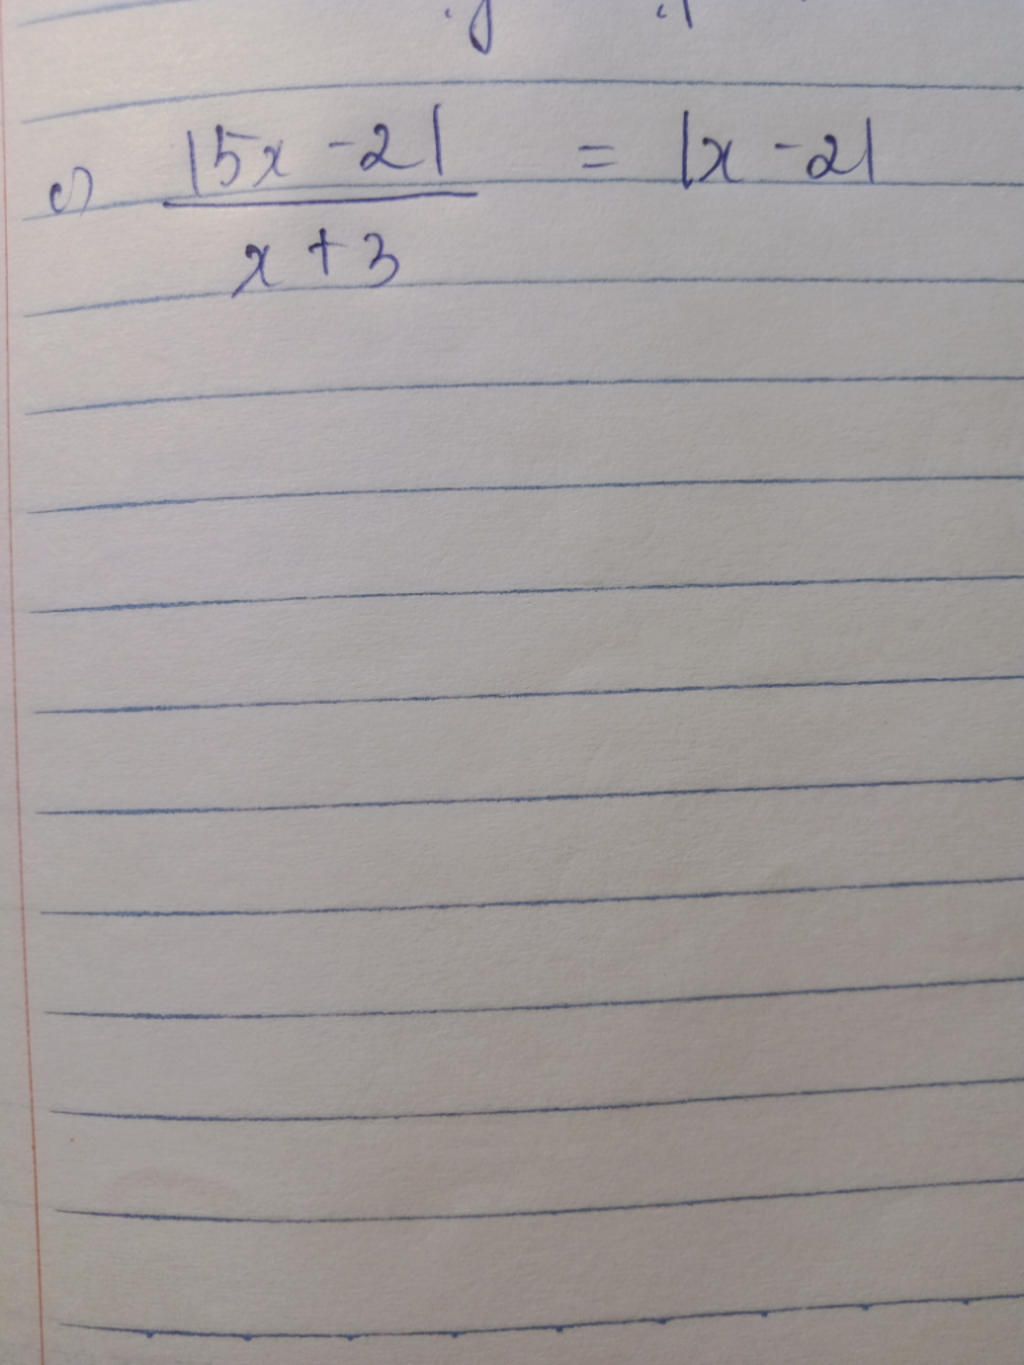 c) |5x - 2| = |x - 2|
x + 3